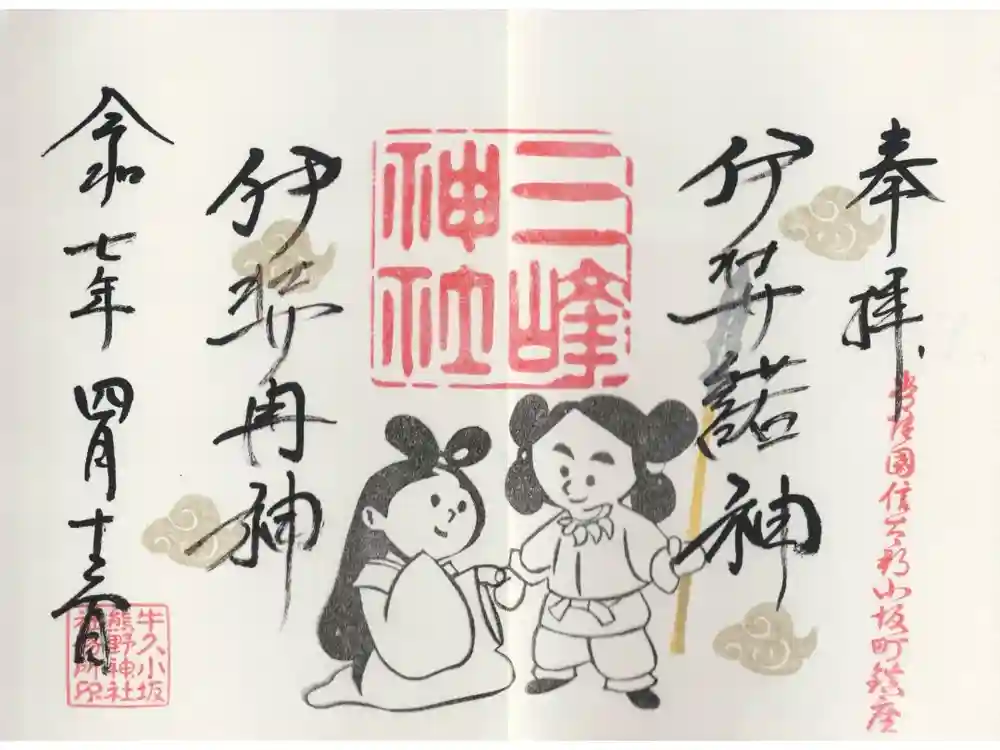 奉拝
常陸國信太郡小坂町鎮座
伊弉諾神
三峰
神社
伊弉冉神
令和七年四月十三日
牛久小坂
熊野神社
社務所印